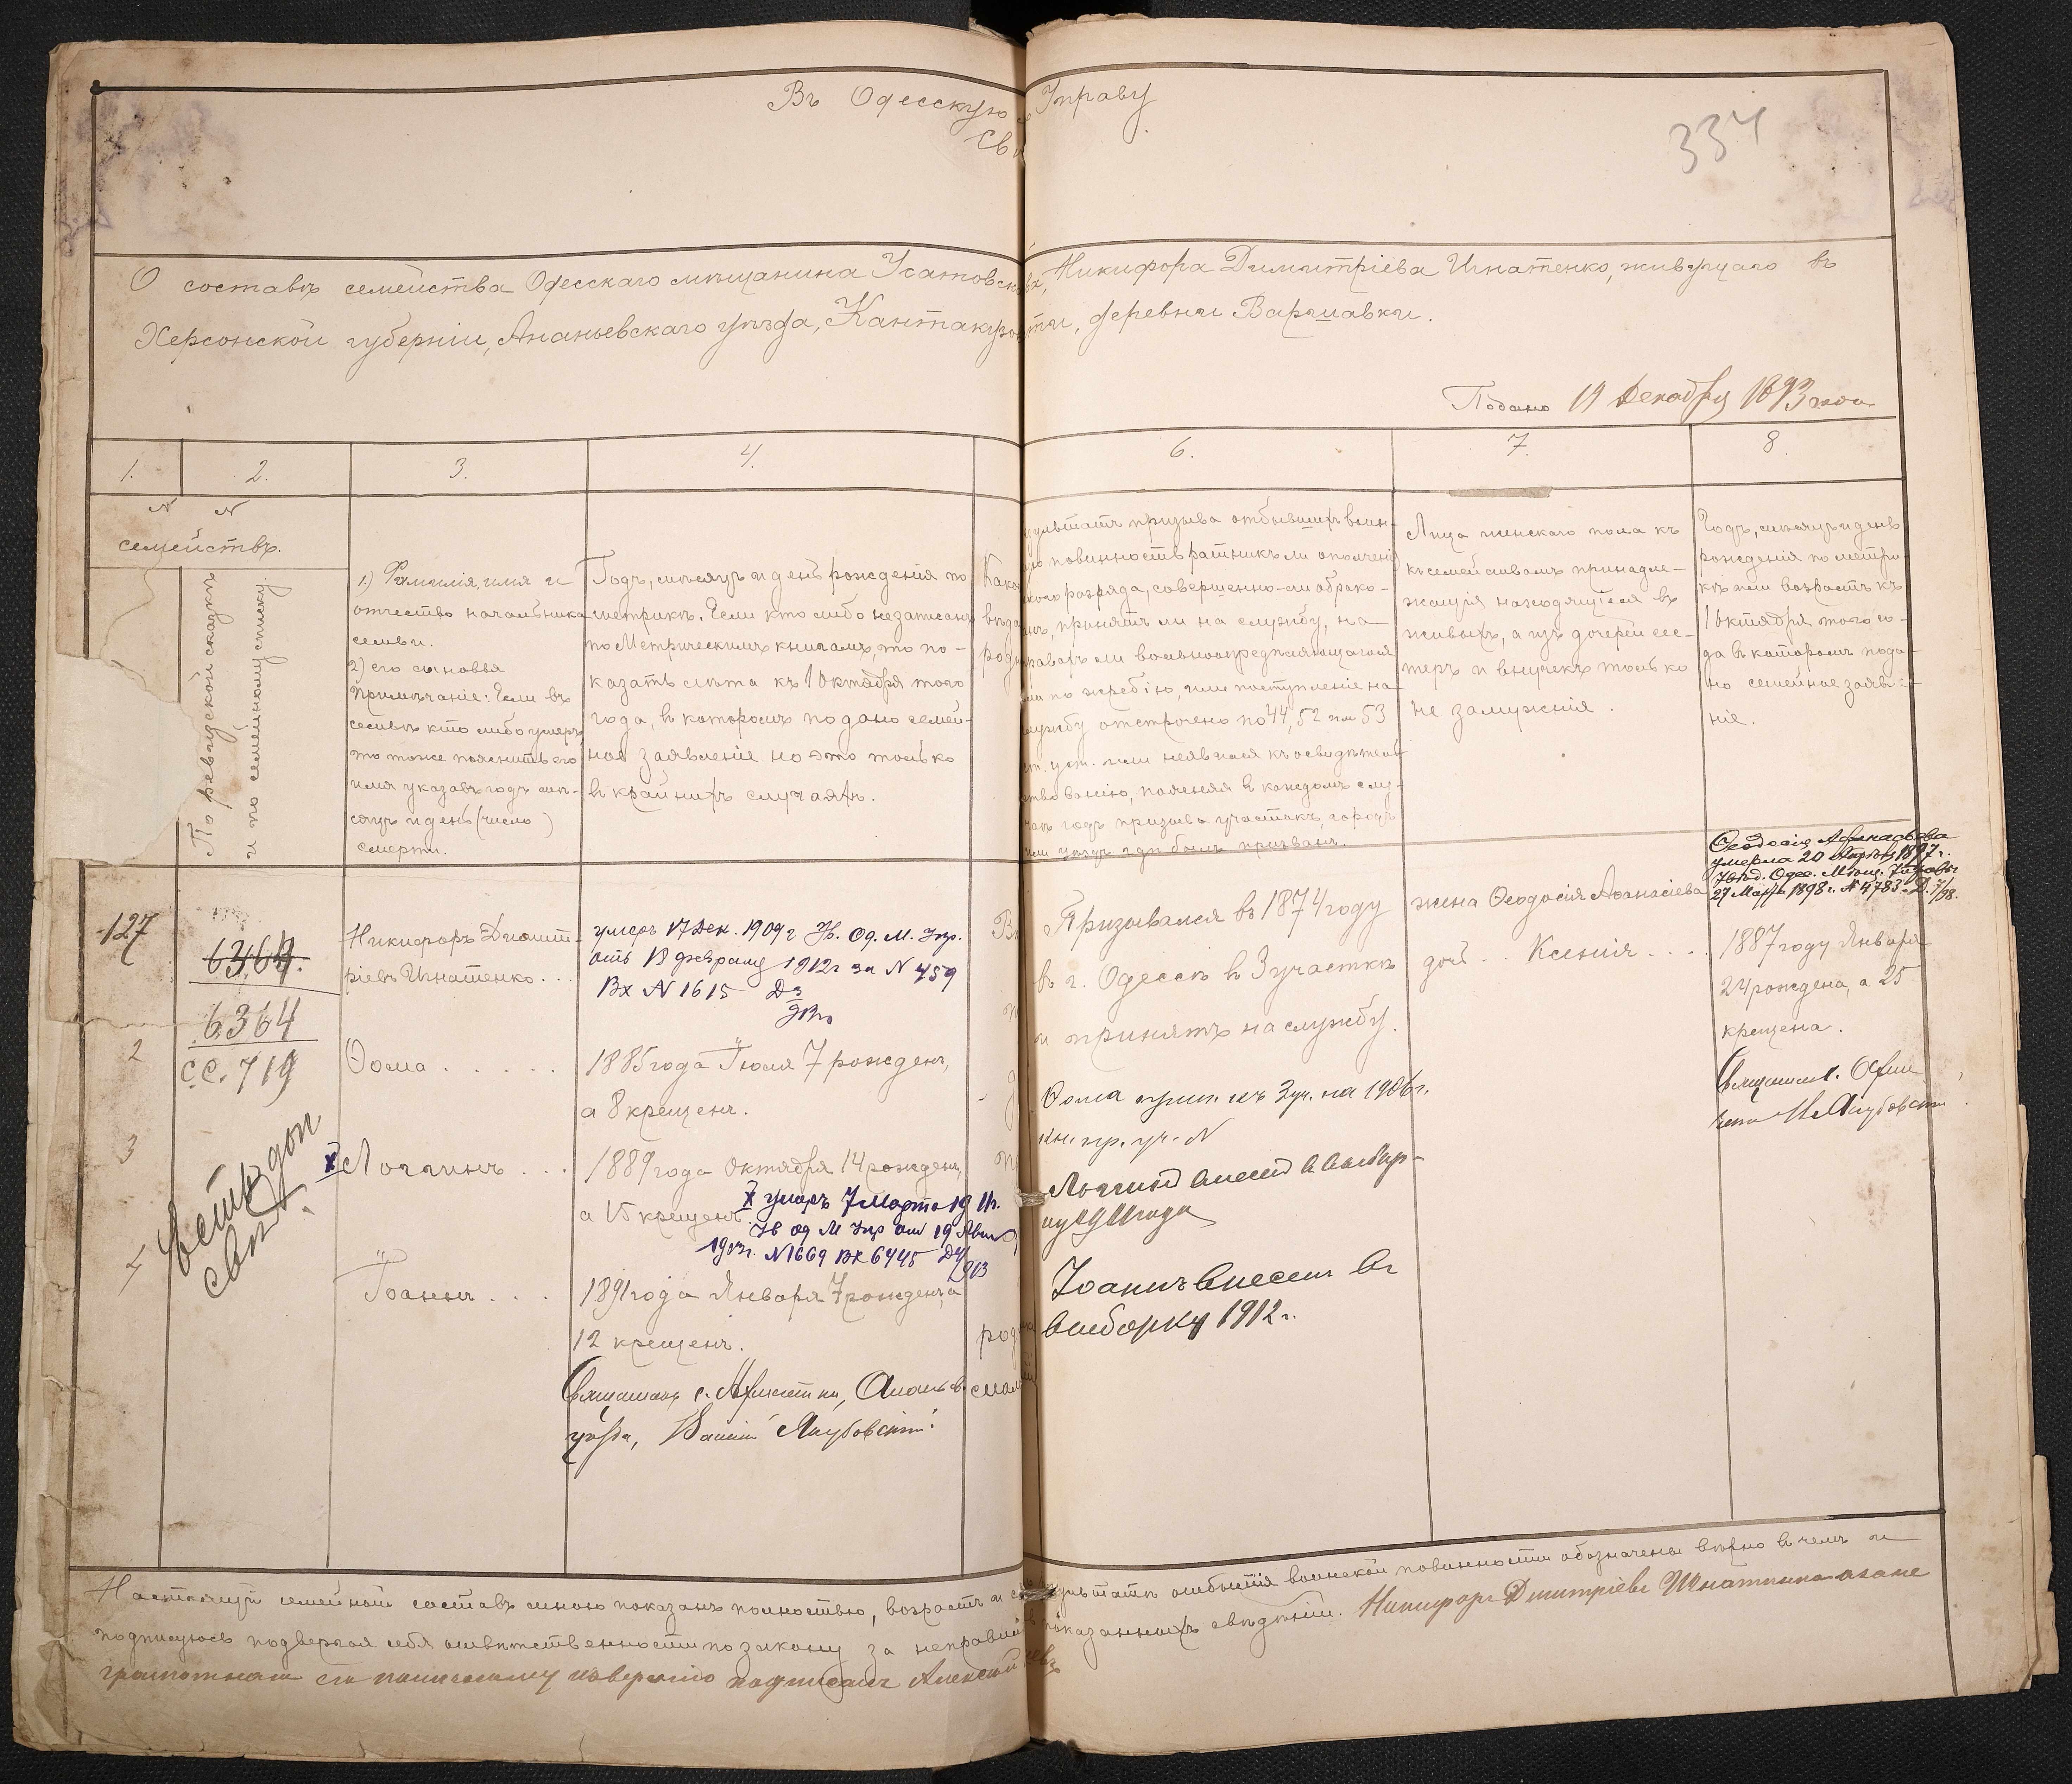 Въ Одесскую
Управу
Св
334
О составѣ семейства Одесскаго мѣщанина Усатовск
Никифора Димитріева Игнатенко, живущаго въ
Херсонской губерніи, Ананьевскаго уѣзда, Кантакузо
деревни Варшавки.
Подано 19 Декабря 1893 года
1. 2. 3. 4.
6. 7. 8
N N
семействъ.
По ревизской сказкѣ
и по семейному списку
1) Фамилія, имя и
отчество начальника
семьи.
2) его сыновья
Примѣчаніе: Если въ
семьѣ кто либо умеръ,
то тоже пояснить его
имя указавъ годъ мѣ-
сяцъ и день (число)
смерти.
Годъ, мѣсяцъ и день рожденія по
метрикѣ. Если кто либо незаписанъ
по Метрическимъ книгамъ, то по-
казать лѣта къ 1 Октября того
года, въ которомъ подано семей-
ное заявленіе но это только
въ крайнихъ случаяхъ.
призыва отбывшихъ воин-
повинность ратникъ ли ополченія
разряда, совершенно-ли забрако-
принятъ ли на службу, на
ли вольноопредѣляющагося
по жребію, или поступленіе на
службу отсрочено по 44, 52 или 53
ст. уст. или неявился къ освидѣтель
ствованію, поясняя въ каждомъ слу-
чаѣ годъ призыва участокъ, городъ
или уѣздъ гдѣ былъ призванъ.
Лица женскаго пола къ
семействамъ принадле-
жащія находящіеся въ
живыхъ, а изъ дочерей сес-
теръ и внучекъ только
не замужнія.
Годъ, мѣсяцъ и день
рожденія по метри-
кѣ или возрастъ къ
1 октября того го-
да въ которомъ пода-
но семейное заявле-
ніе.
127
6364.
6364
С.С. 719
Есть доп
свѣд.
Никифоръ Димит-
ріевъ Игнатенко...
умеръ 17 Дек. 1909 г Ув. Од. М. Упр.
отъ 13 февраля 1912 г за N 459
Вх N 1615
Призывался въ 1874 году
въ г. Одессѣ въ 3 участкѣ
и принятъ на службу.
жена Ѳеодосія Аѳанасіева
Ѳеодосія Афанасьева
умерла 20 1897 г.
Увѣд. Одес. Мѣщ. Управы
27 Марта 1898 г. N 4783
доч. .. Ксенія ....
1887 году Января
24 рождена, а 25
крещена.
2
Ѳома .....
1885 года Іюля 7 рожденъ,
а 8 крещенъ.
Ѳома прип. къ 3 уч. на 1906 г.
кн. пр. уч. N
3
X Логгинъ ...
1889 года Октября 14 рожденъ,
а 15 крещенъ.
X умеръ 7 Марта 19
Ув од М Упр отъ 19
N 1669 Вх 6445
Логгинъ внесенъ въ выбор-
ку 1911 года
4
Іоаннъ ...
1891 года Января 7 рожденъ, а
12 крещенъ.
Іоаннъ внесенъ въ
выборку 1912 г.
Якубовскій
Настоящій семейный составъ мною показанъ полностью, возрастъ и
отбытія воинской повинности обозначены вѣрно въ чемъ и
подписуюсь подвергая себя отвѣтственности по закону за неправил
показанныхъ свѣдѣній. Никифоръ Дмитріевъ Игнатенко а за не
грамотнаго его по личному довѣрію подписалъ Алексѣй